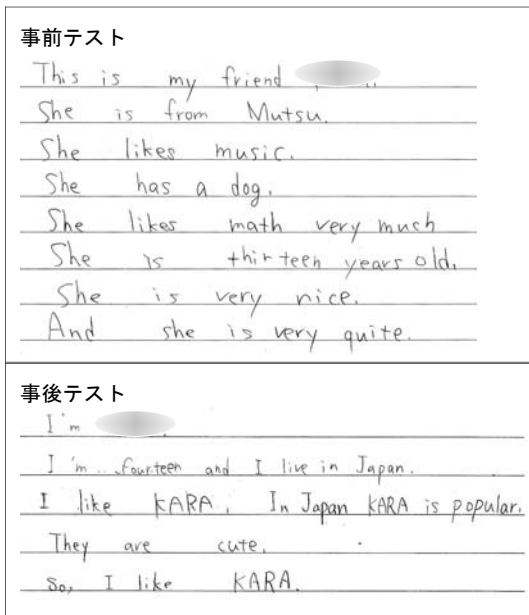 事前テスト
This is my friend
She is from Mutsu.
She likes music.
She has a dog.
She likes math very much
She is thirteen years old.
She is very nice.
And she is very quite.
事後テスト
I'm
I'm fourteen and I live in Japan.
I like KARA. In Japan KARA is popular.
They are cute.
So, I like KARA.